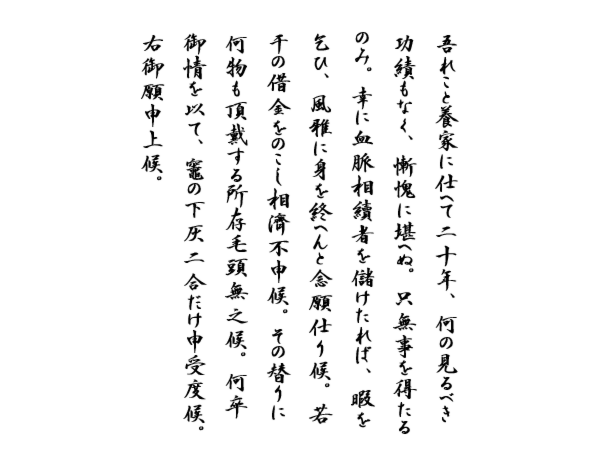 吾れこと養家に仕へて二十年、何の見るべき
功績もなく、慚愧に堪へぬ。只無事を得たる
のみ。幸に血脈相續者を儲けたれば、暇を
乞ひ、風雅に身を終へんと念願仕り候。若
干の借金をのこし相濟不申候。その替りに
何物も頂戴する所存毛頭無之候。何卒
御情を以て、竈の下灰二合だけ申受度候。
右御願申上候。